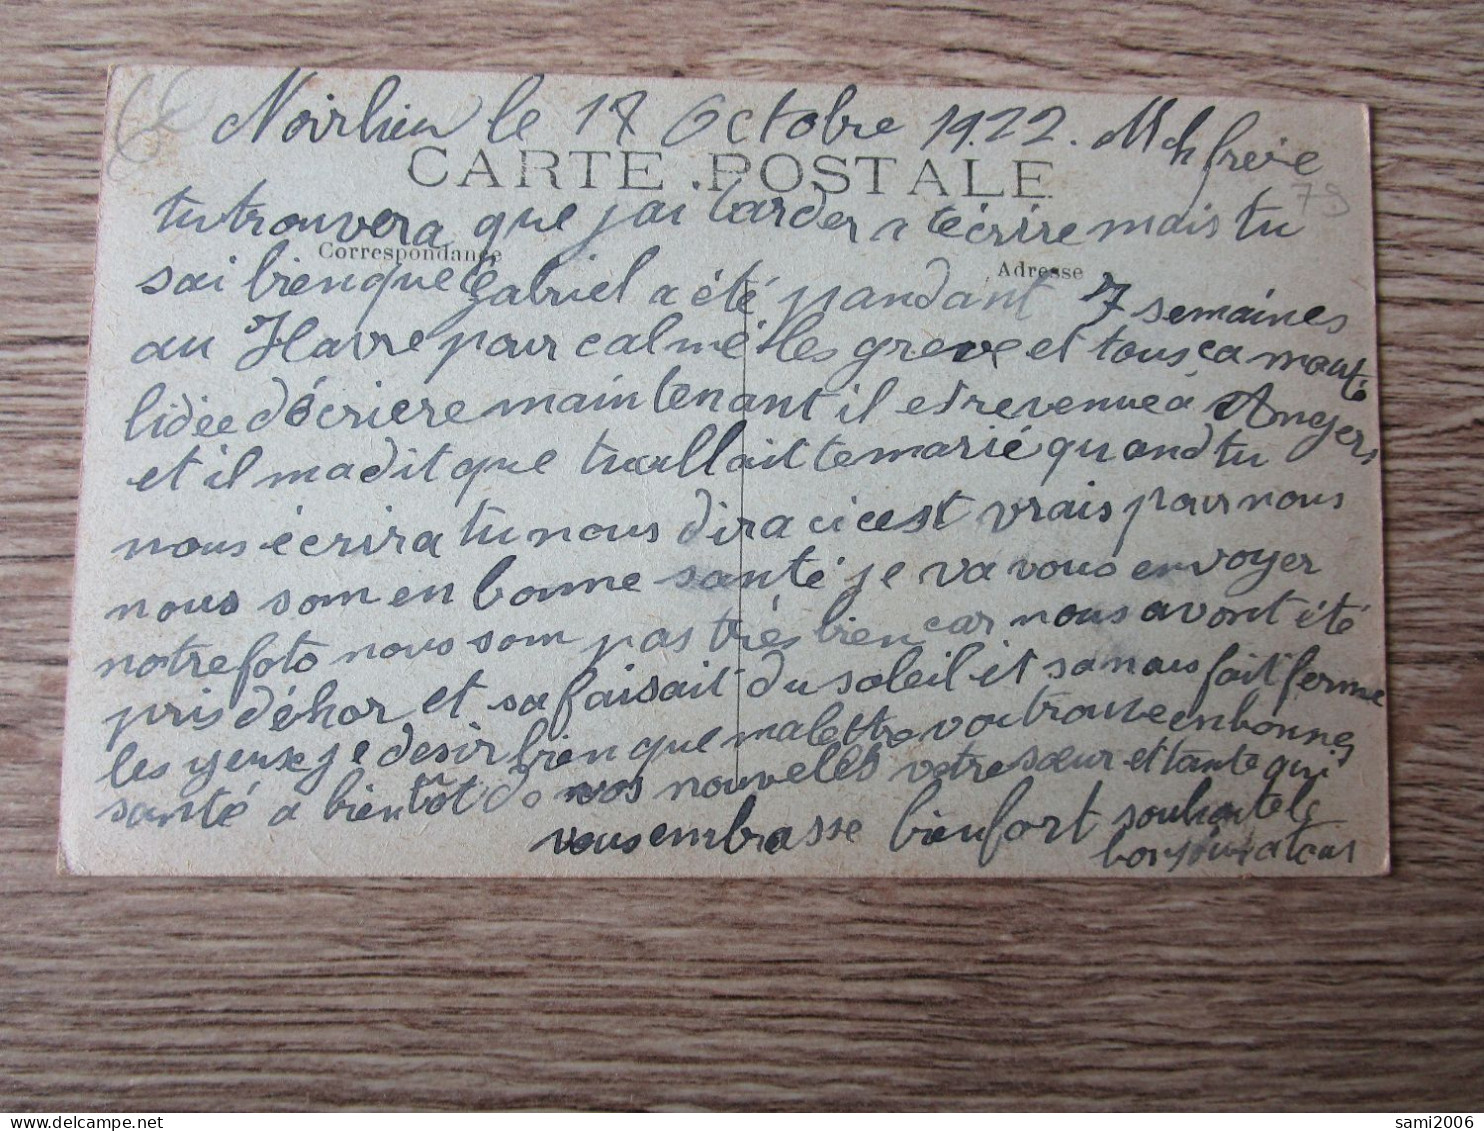 Noirlieu le 18 Octobre 1922. M ch freire
CARTE POSTALE
79
tu trouvera que j'ai tarder a t'écrire mais tu
Correspondance
Adresse
sai bien que Gabriel a été pandant 7 semaines
au Havre pour calmé les greve et tous ca m'ôté
lidée d'écriere maintenant il est revenue a Angers
et il ma dit que tu allait te marié quand tu
nous écrira tu nous dira ci cest vrais pour nous
nous som en bonne santé je va vous envoyer
notre foto nous som pas très bien car nous avont été
pris déhor et sa faisait du soleil et sa nous fait fermé
les yeuse je desir bien que ma lettre vou trouve en bonnes
santé a bientôt de vos nouvelles votre sœur et tante qui
vous embrasse bien fort souhaite le
bonjour a tous
sami2006